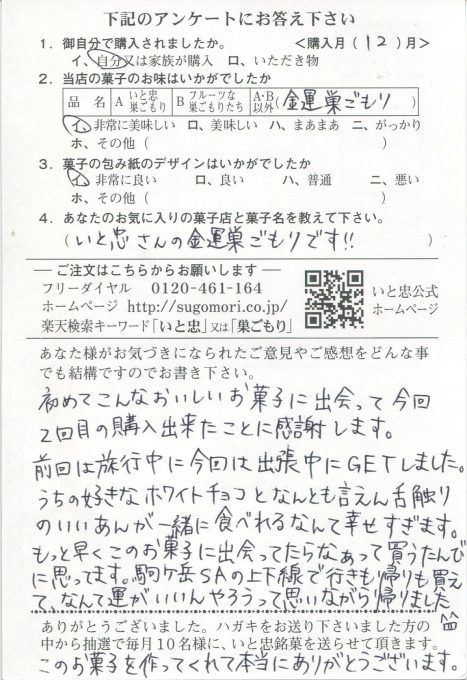 下記のアンケートにお答え下さい
1. 御自分で購入されましたか。 <購入月(12)月>
イ、自分又は家族が購入 ロ、いただき物
2. 当店の菓子のお味はいかがでしたか
品 名 A いと忠巣ごもり B フルーツな巣ごもりたち A・B以外(金運巣ごもり)
イ、非常に美味しい ロ、美味しい ハ、まあまあ ニ、がっかり
ホ、その他( )
3. 菓子の包み紙のデザインはいかがでしたか
イ、非常に良い ロ、良い ハ、普通 ニ、悪い
ホ、その他( )
4. あなたのお気に入りの菓子店と菓子名を教えて下さい。
(いと忠さんの金運巣ごもりです!!)
―ご注文はこちらからお願いします―
フリーダイヤル 0120-461-164
ホームページ http://sugomori.co.jp/
楽天検索キーワード「いと忠」又は「巣ごもり」
いと忠公式
ホームページ
あなた様がお気づきになられたご意見やご感想をどんな事
でも結構ですのでお書き下さい。
初めてこんなおいしいお菓子に出会って今回
2回目の購入出来たことに感謝します。
前回は旅行中に今回は出張中にGETしました。
うちの好きなホワイトチョコとなんとも言えん舌触り
のいいあんが一緒に食べれるなんて幸せすぎます。
もっと早くこのお菓子に出会ってたらなあって買うたんび
に思ってます。駒ケ岳SAの上下線で行きも帰りも買え
て、なんて運がいいんやろうって思いながら帰りました
ありがとうございました。ハガキをお送り下さいました方の
中から抽選で毎月10名様に、いと忠銘菓を送らせて頂きます。
このお菓子を作ってくれて本当にありがとうございます。